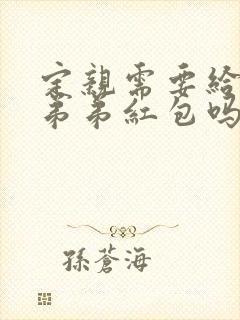 定親需要給
弟弟紅包吗
孫蒼海